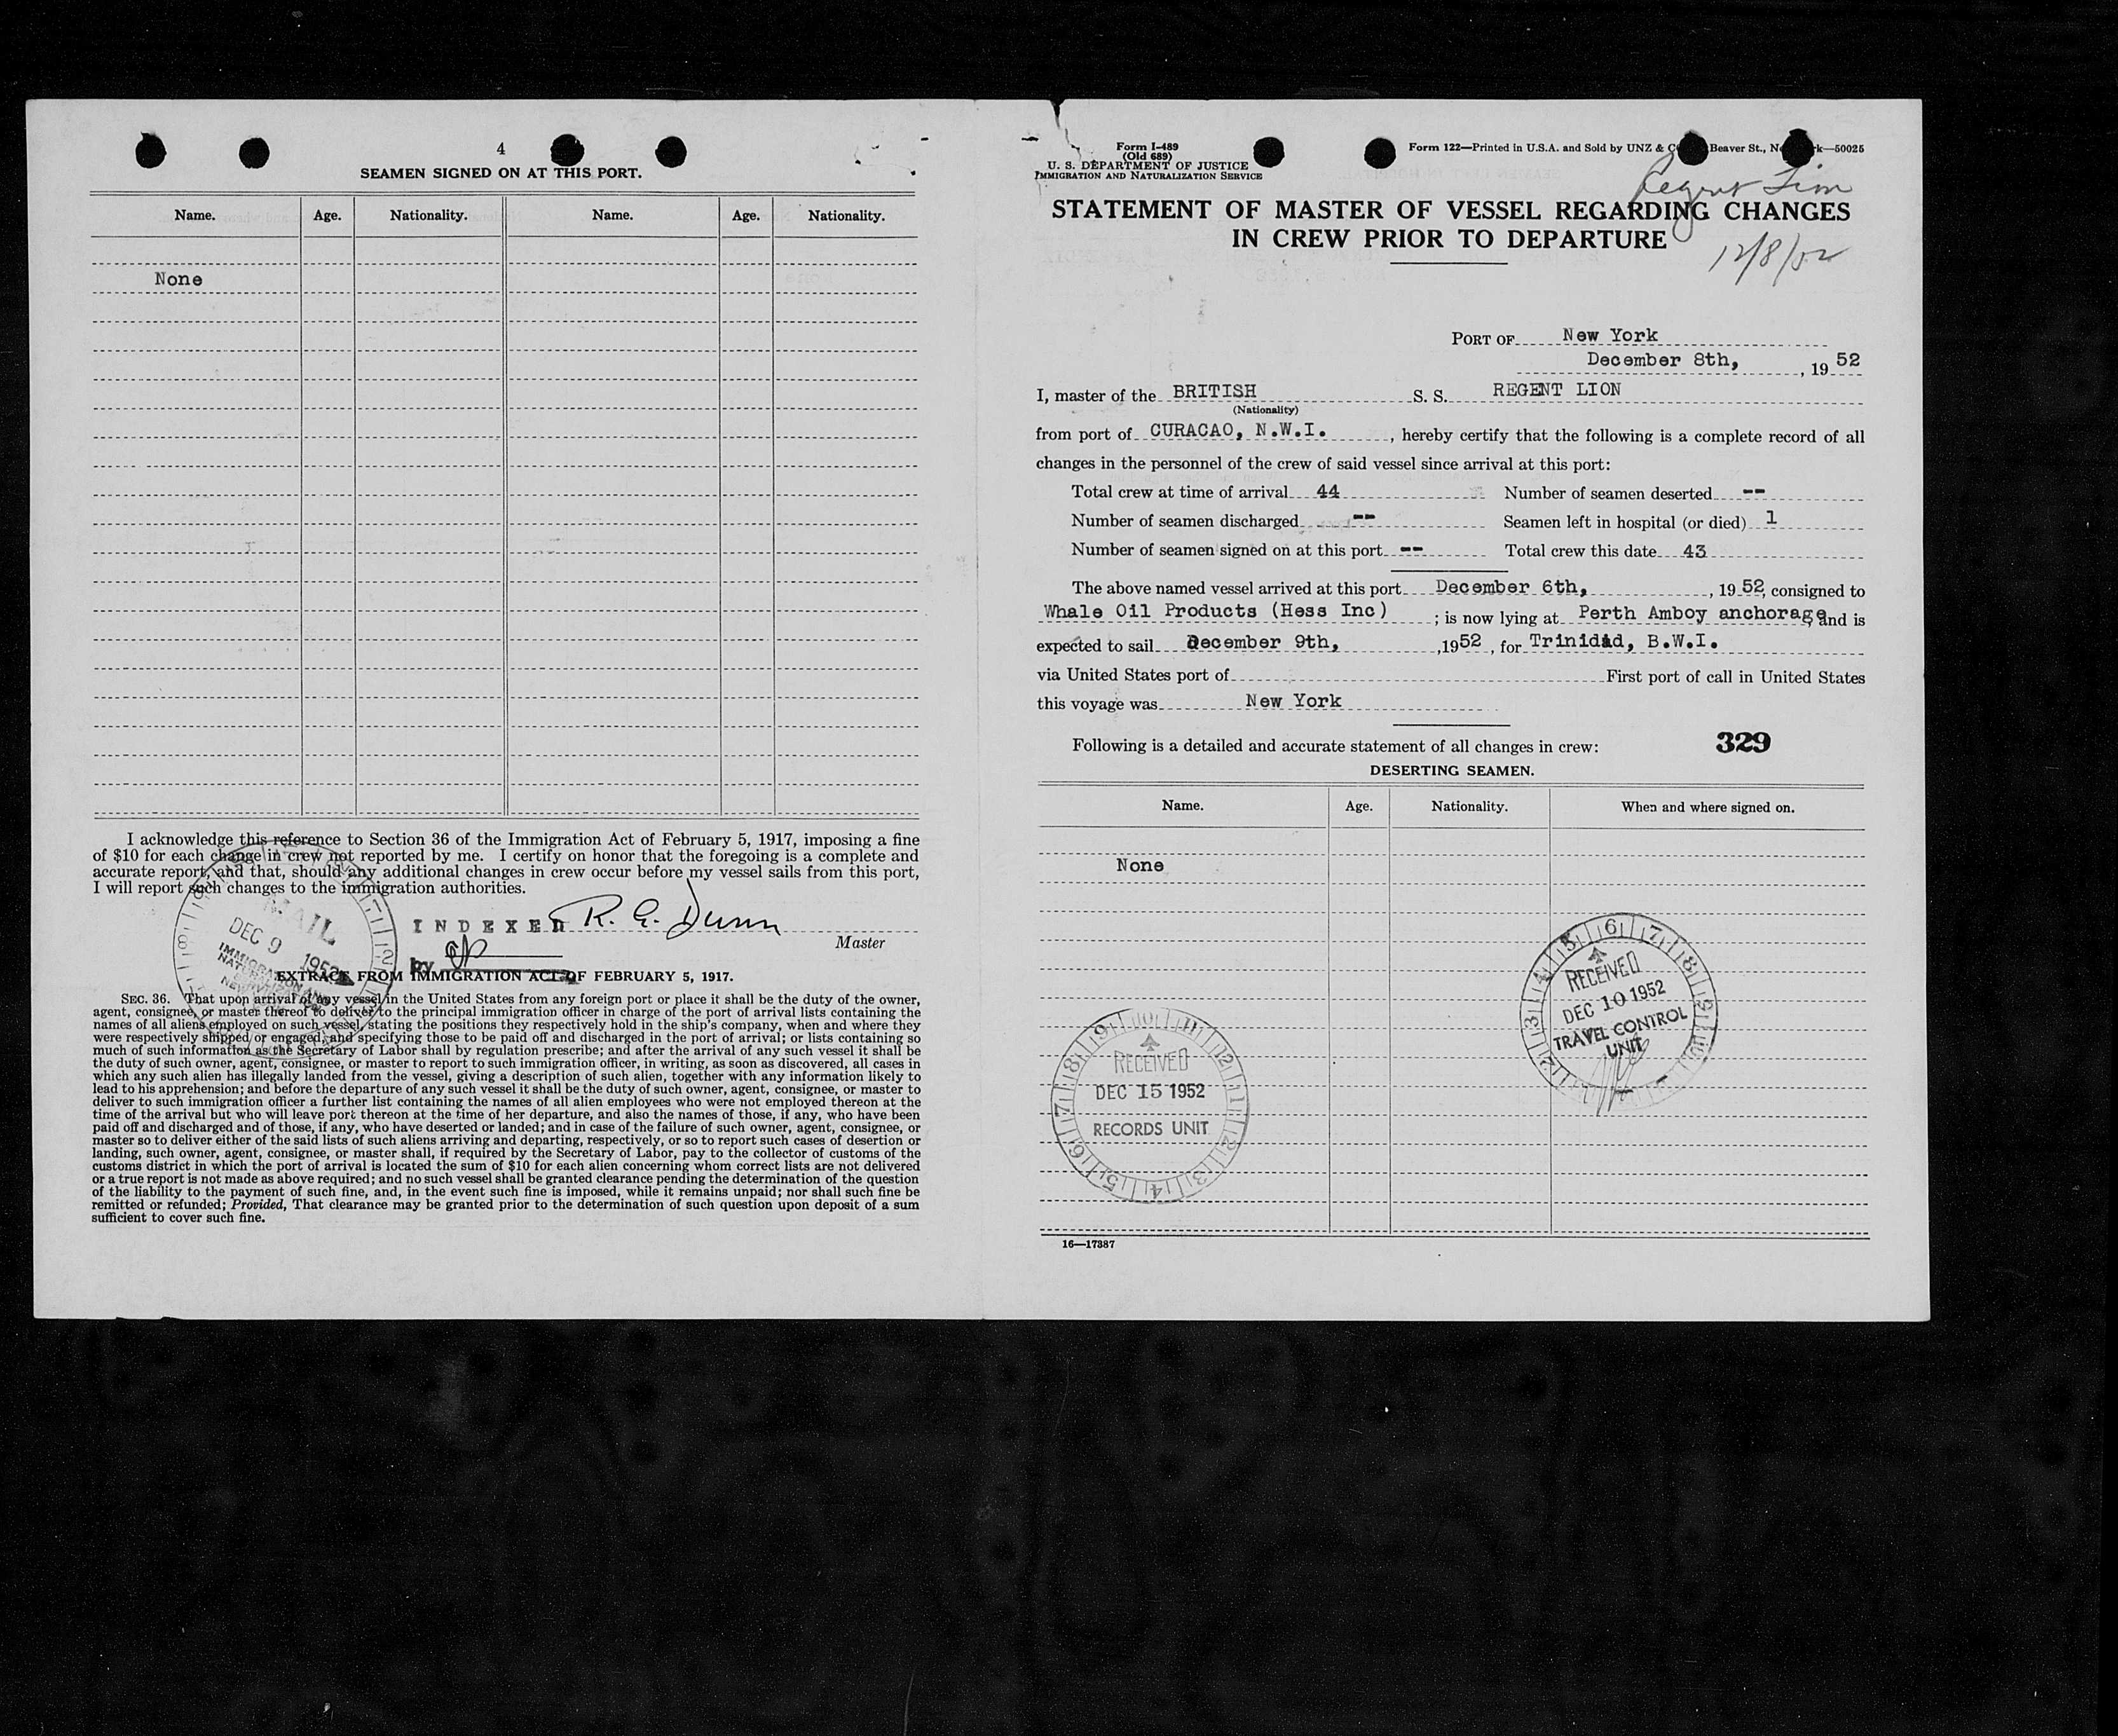 4
SEAMEN SIGNED ON AT THIS PORT.
Name. Age. Nationality. Name. Age. Nationality.
None
I acknowledge this reference to Section 36 of the Immigration Act of February 5, 1917, imposing a fine
of $10 for each change in crew not reported by me. I certify on honor that the foregoing is a complete and
accurate report, and that, should any additional changes in crew occur before my vessel sails from this port,
I will report such changes to the immigration authorities.
MAIL
DEC 9 1952
IMMIGRATION AND
INDEXED R. E. Dunn
Master
by
EXTRACT FROM IMMIGRATION ACT OF FEBRUARY 5, 1917.
SEC. 36. That upon arrival of any vessel in the United States from any foreign port or place it shall be the duty of the owner,
agent, consignee, or master thereof to deliver to the principal immigration officer in charge of the port of arrival lists containing the
names of all aliens employed on such vessel, stating the positions they respectively hold in the ship's company, when and where they
were respectively shipped or engaged, and specifying those to be paid off and discharged in the port of arrival; or lists containing so
much of such information as the Secretary of Labor shall by regulation prescribe; and after the arrival of any such vessel it shall be
the duty of such owner, agent, consignee, or master to report to such immigration officer, in writing, as soon as discovered, all cases in
which any such alien has illegally landed from the vessel, giving a description of such alien, together with any information likely to
lead to his apprehension; and before the departure of any such vessel it shall be the duty of such owner, agent, consignee, or master to
deliver to such immigration officer a further list containing the names of all alien employees who were not employed thereon at the
time of the arrival but who will leave port thereon at the time of her departure, and also the names of those, if any, who have been
paid off and discharged and of those, if any, who have deserted or landed; and in case of the failure of such owner, agent, consignee, or
master so to deliver either of the said lists of such aliens arriving and departing, respectively, or so to report such cases of desertion or
landing, such owner, agent, consignee, or master shall, if required by the Secretary of Labor, pay to the collector of customs of the
customs district in which the port of arrival is located the sum of $10 for each alien concerning whom correct lists are not delivered
or a true report is not made as above required; and no such vessel shall be granted clearance pending the determination of the question
of the liability to the payment of such fine, and, in the event such fine is imposed, while it remains unpaid; nor shall such fine be
remitted or refunded; Provided, That clearance may be granted prior to the determination of such question upon deposit of a sum
sufficient to cover such fine.
Form I-489
(Old 689)
U. S. DEPARTMENT OF JUSTICE
IMMIGRATION AND NATURALIZATION SERVICE
Form 122—Printed in U.S.A. and Sold by UNZ & C Beaver St., N k—50025
Regent Lion
STATEMENT OF MASTER OF VESSEL REGARDING CHANGES
IN CREW PRIOR TO DEPARTURE
12/8/52
PORT OF New York
December 8th, , 19 52
I, master of the BRITISH S. S. REGENT LION
(Nationality)
from port of CURACAO, N.W.I. , hereby certify that the following is a complete record of all
changes in the personnel of the crew of said vessel since arrival at this port:
Total crew at time of arrival 44 Number of seamen deserted --
Number of seamen discharged -- Seamen left in hospital (or died) 1
Number of seamen signed on at this port -- Total crew this date 43
The above named vessel arrived at this port December 6th, , 19 52, consigned to
Whale Oil Products (Hess Inc) ; is now lying at Perth Amboy anchorage and is
expected to sail December 9th, ,1952 , for Trinidad, B.W.I.
via United States port of First port of call in United States
this voyage was New York
Following is a detailed and accurate statement of all changes in crew: 329
DESERTING SEAMEN.
Name. Age. Nationality. When and where signed on.
None
RECEIVED
DEC 10 1952
TRAVEL CONTROL
UNIT
RECEIVED
DEC 15 1952
RECORDS UNIT
16—17387